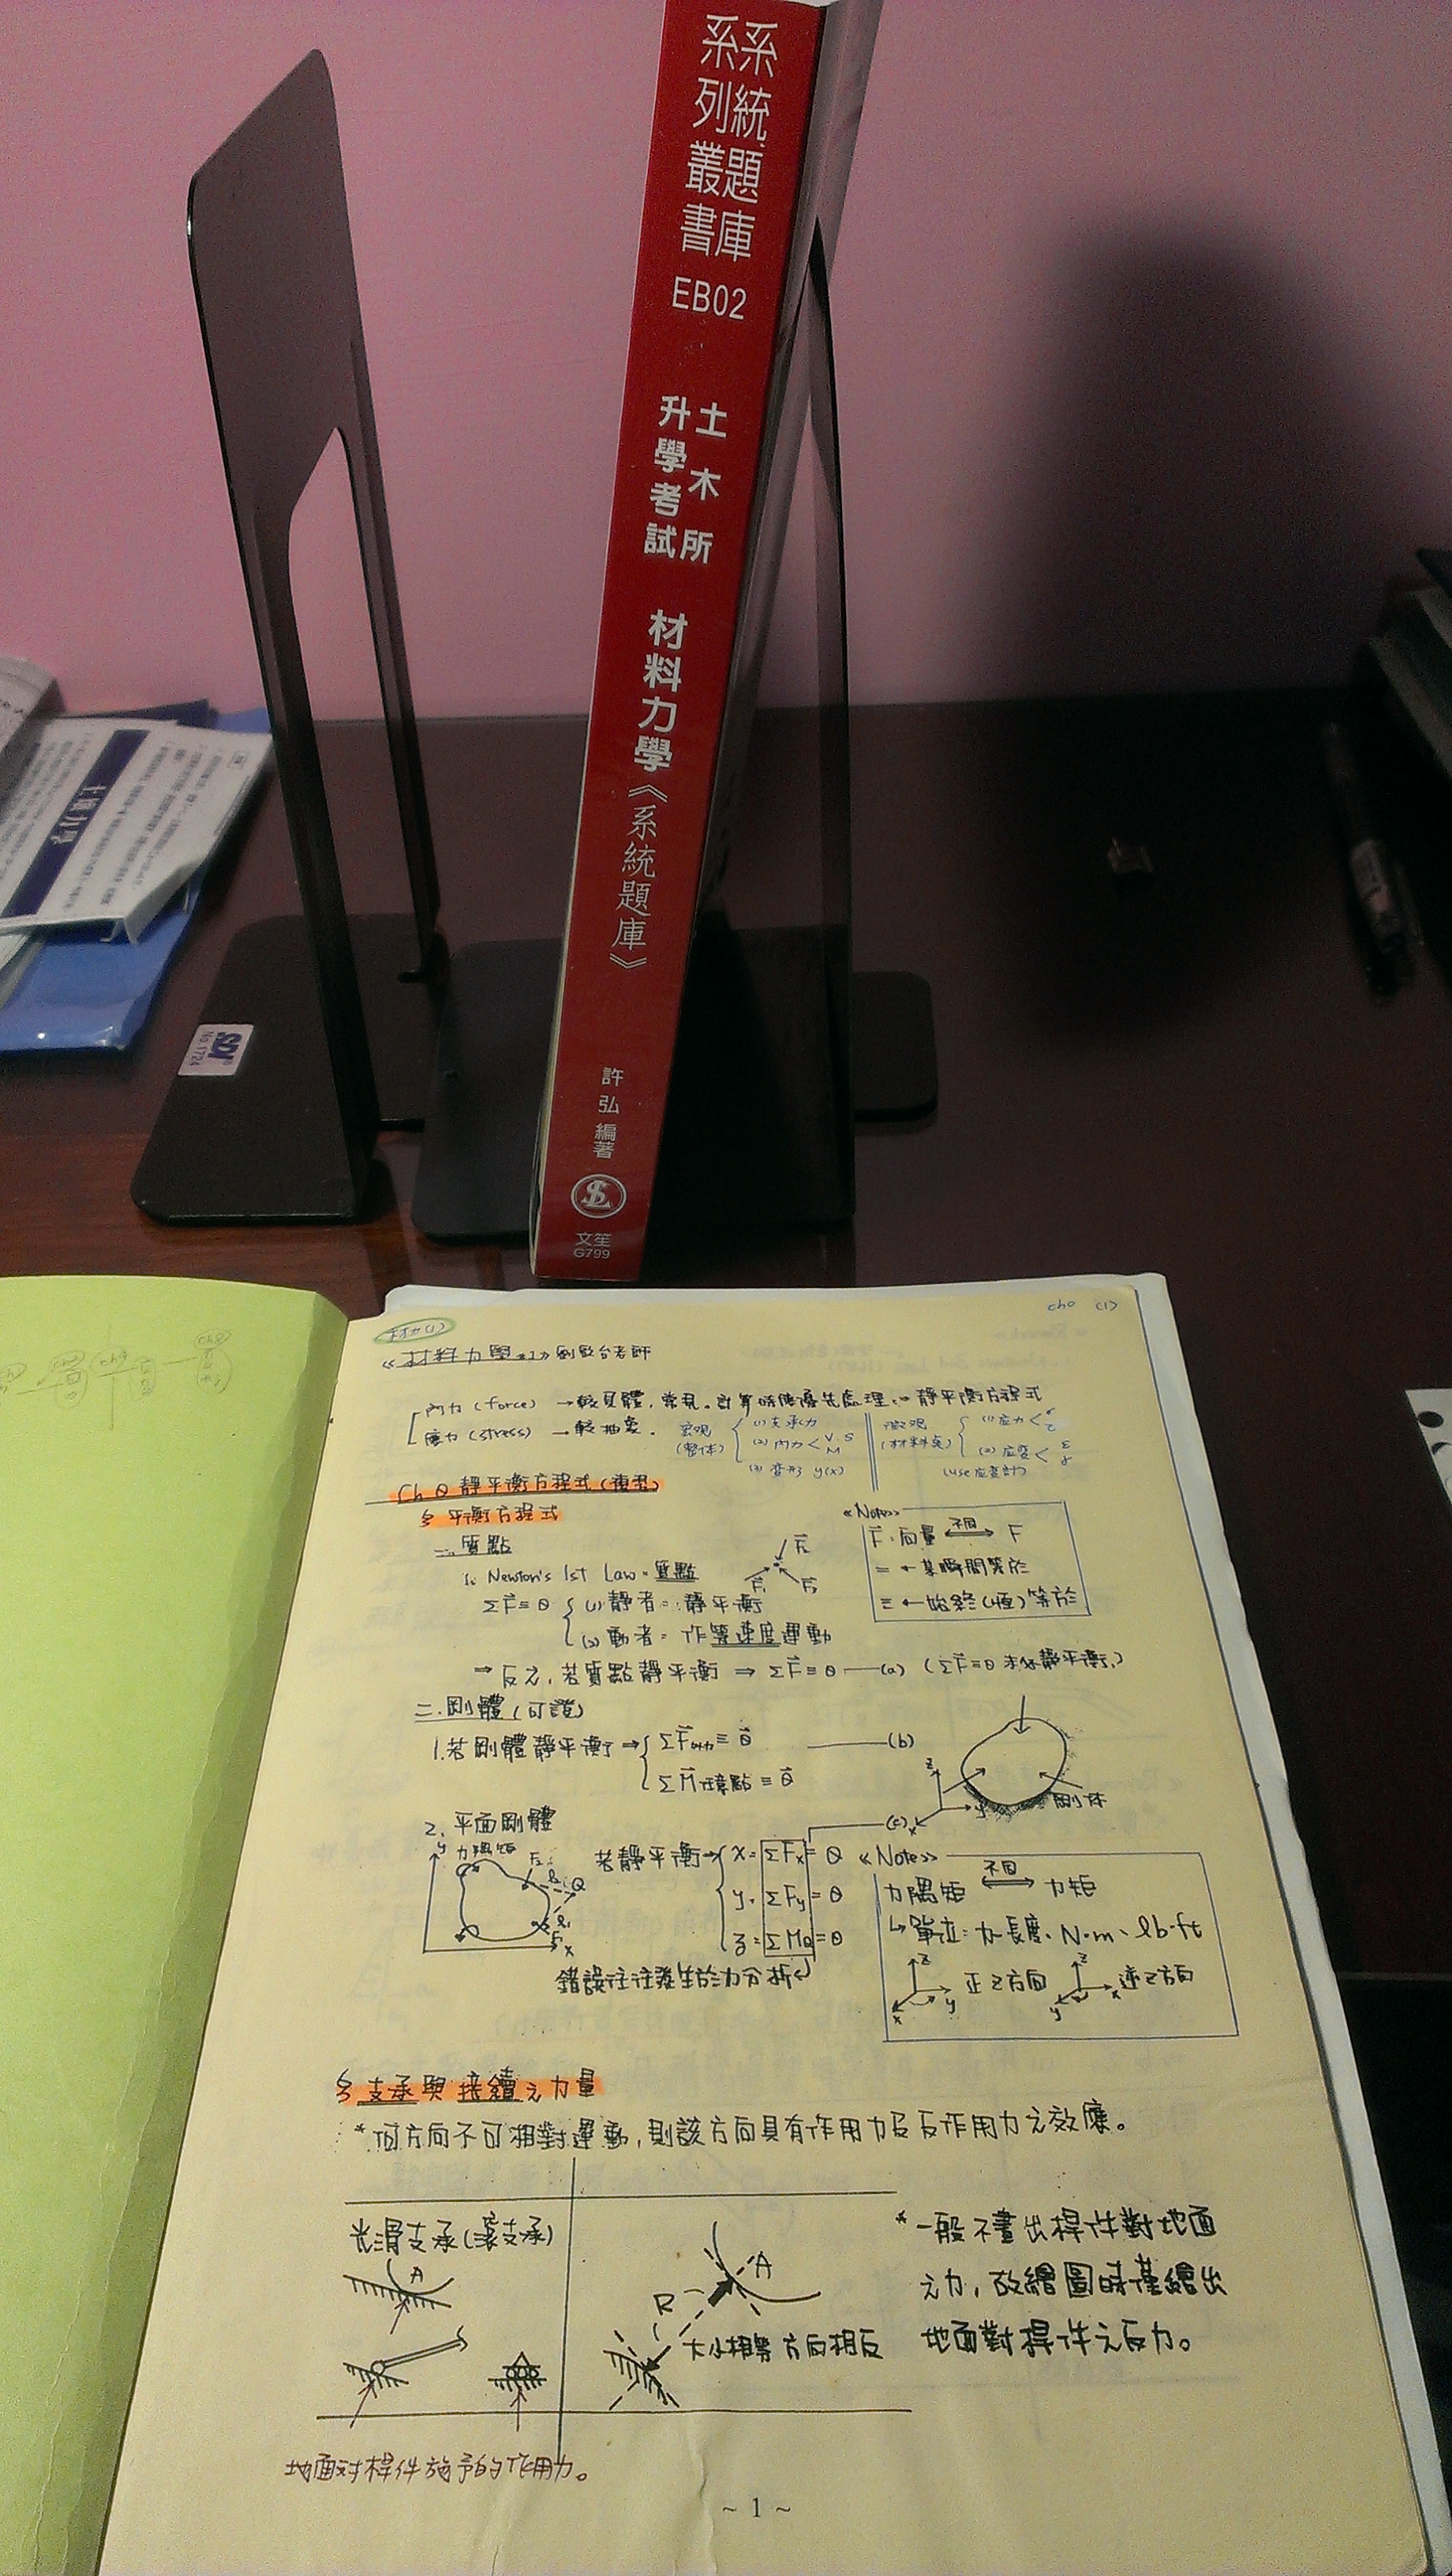 系統題庫
系列叢書
EB02
土木所
升學考試
材料力學《系統題庫》
許弘 編著
文笙
G799
土壤力學
SDI
No.1724
ch0 (1)
材力(1)
《材料力學
老師
內力 (force) →較具體,常見。計算時優先處理 靜平衡方程式
應力 (stress) →較抽象。
宏观
(整体)
(1) 支承力
(2) 內力 < V.S
M
(3) 变形 y(x)
微观
(材料点)
(1) 应力 < σ
τ
(2) 应变 < ε
γ
(use 应变計)
Ch 0 靜平衡方程式(複習)
§ 平衡方程式
一.質點
1. Newton's 1st Law - 質點
ΣF⃗ ≡ 0 { (1) 靜者 = 靜平衡
(2) 動者 = 作等速度運動
⇒ 反之,若質點靜平衡 ⇒ ΣF⃗ ≡ 0 —(a) (ΣF⃗ ≡ 0 未必靜平衡)
F⃗₂
F⃗₁
F⃗₃
《Note》
F⃗ 向量 不同 ⟷ F
= ← 某瞬間等於
≡ ← 始終(恆)等於
二.剛體(可證)
1.若剛體靜平衡 → { ΣF⃗外力 ≡ 0⃗ —(b)
ΣM⃗任意點 ≡ 0⃗
z
y
x
剛体
2. 平面剛體
y
力偶矩
F₂
Q
x
若靜平衡 → { x = ΣFx = 0 —(c)
y = ΣFy = 0
z = ΣMQ = 0
錯誤往往發生於力分析
《Note》
力偶矩 不同 ⟷ 力矩
↳ 單位 = 力·長度、N·m、lb·ft
z
x
y
正Z方向
z
y
x
逆Z方向
§ 支承與接續之力量
* 何方向不可相對運動,則該方向具有作用力及反作用力之效應。
光滑支承(滾支承)
A
A
R
大小相等 方向相反
* 一般不畫出桿件對地面
之力,故繪圖時僅繪出
地面對桿件之反力。
地面对桿件施予的作用力。
~ 1 ~